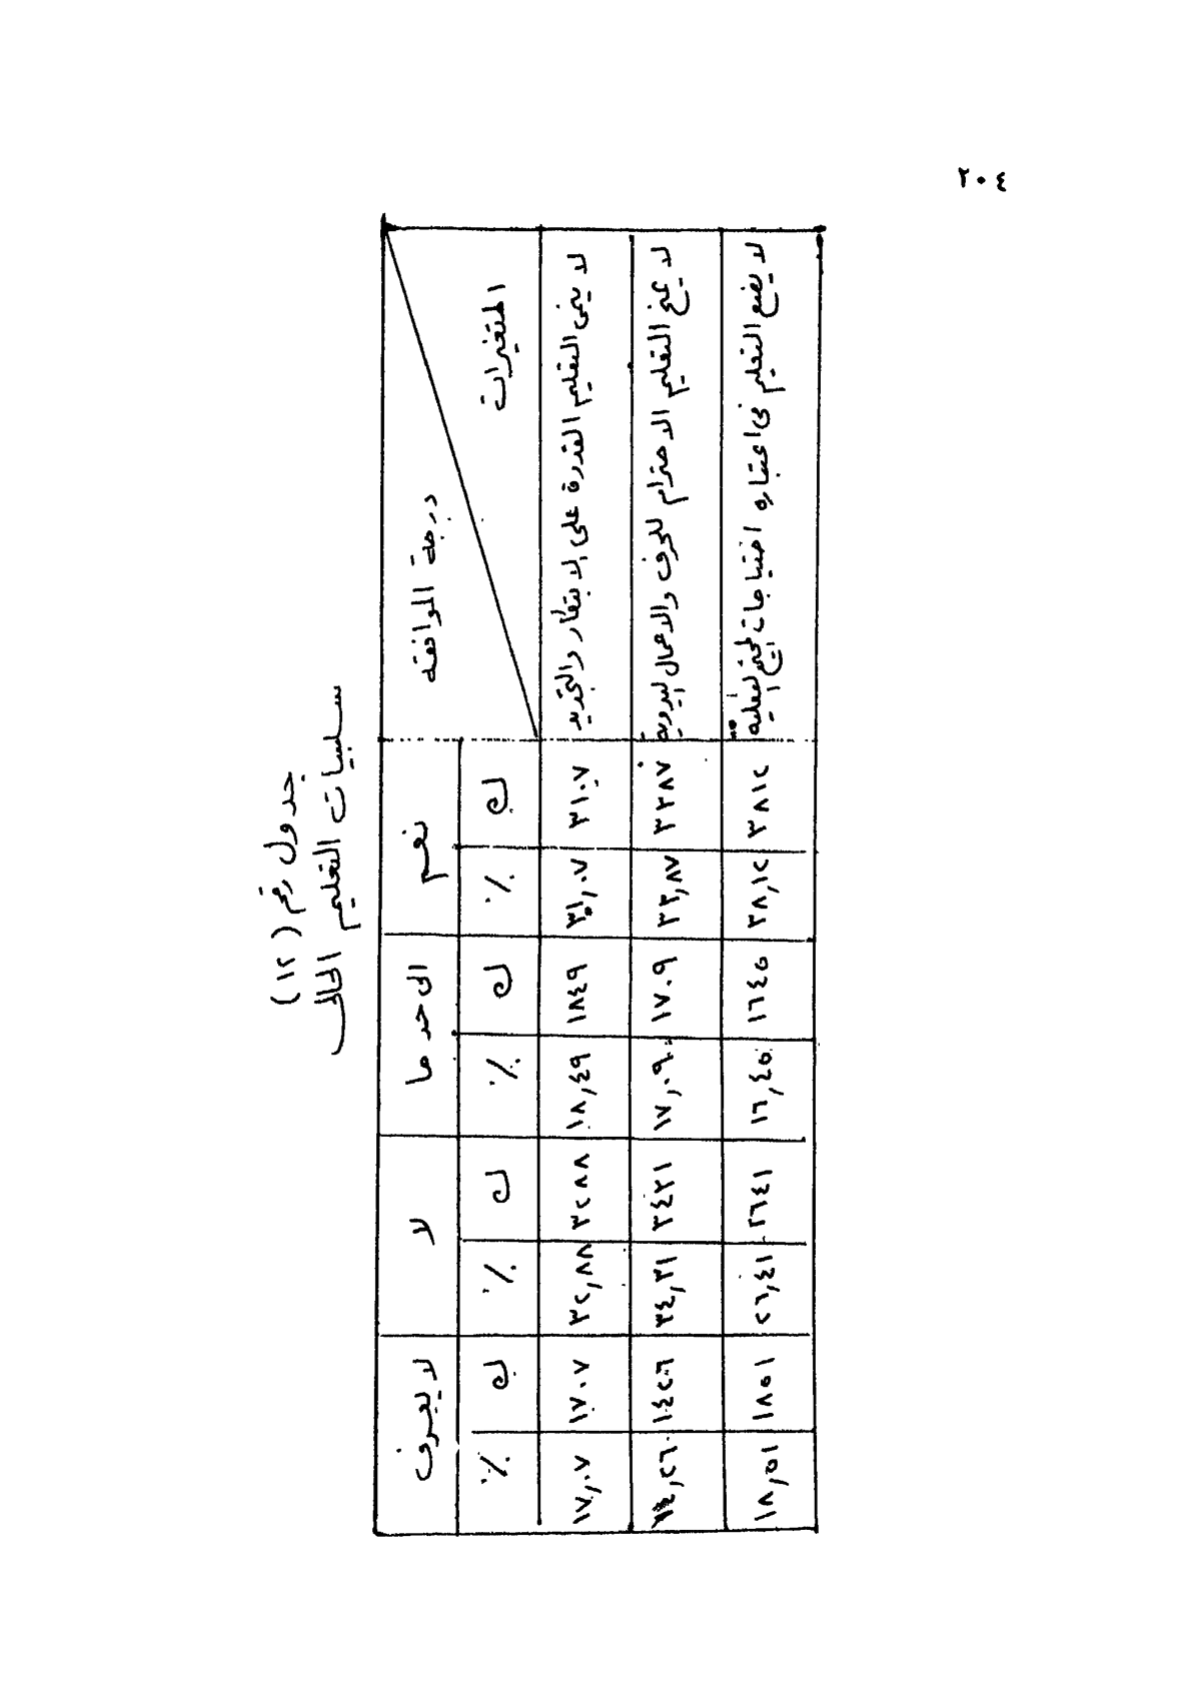 ٢٠٤
جدول رقم (١٢)
سلبيات التعليم الحالى
درجة الموافقة نعم الى حد ما لا لا يعرف
المتغيرات ك ٪ ك ٪ ك ٪ ك ٪
لا ينمى التعليم القدرة على الابتكار والتجديد ٣١٠٧ ٣١,٠٧ ١٨٤٩ ١٨,٤٩ ٣٢٨٨ ٣٢,٨٨ ١٧٠٧ ١٧,٠٧
لا يمنح التعليم الاحترام للحرف والاعمال اليدوية ٣٣٨٧ ٣٣,٨٧ ١٧٠٩ ١٧,٠٩ ٣٤٣١ ٣٤,٣١ ١٤٢٦ ١٤,٢٦
لا يضع التعليم فى اعتباره احتياجات المجتمع الفعلية ٣٨١٢ ٣٨,١٢ ١٦٤٥ ١٦,٤٥ ٢٦٤١ ٢٦,٤١ ١٨٥١ ١٨,٥١